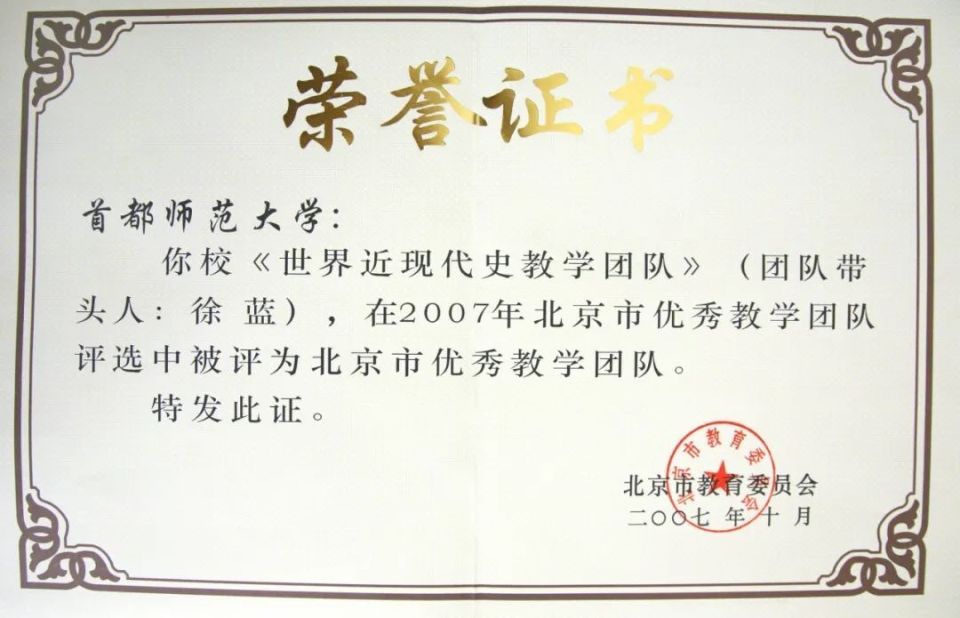 荣誉证书
首都师范大学：
你校《世界近现代史教学团队》（团队带
头人：徐 蓝），在2007年北京市优秀教学团队
评选中被评为北京市优秀教学团队。
特发此证。
北京市教育委员会
北京市教育委员会
二〇〇七年十月